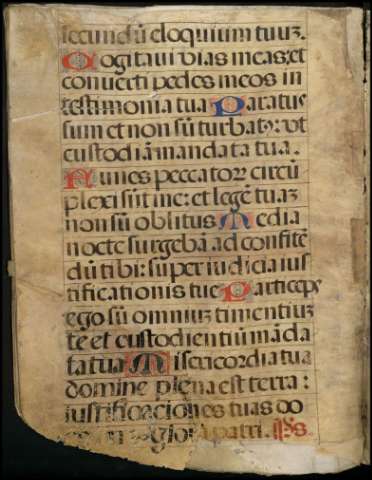 secundũ eloquium tuuz.
Cogitaui vias meas: et
conuerti pedes meos in
testimonia tua Paratus
sum et non sũ turbatꝰ: vt
custodiã mandata tua.
Funes peccatoꝝ circũ
plexi sũt me: et legẽ tuaz
non sũ oblitus Media
nocte surgebã ad confitẽ
dũ tibi: super iudicia ius
tificationis tue Particeps
ego sũ omniuz timentiuz
te et custodientiũ mãda
ta tua Misericordia tua
domine plena est terra:
iustificaciones tuas do
gloria patri. ps.